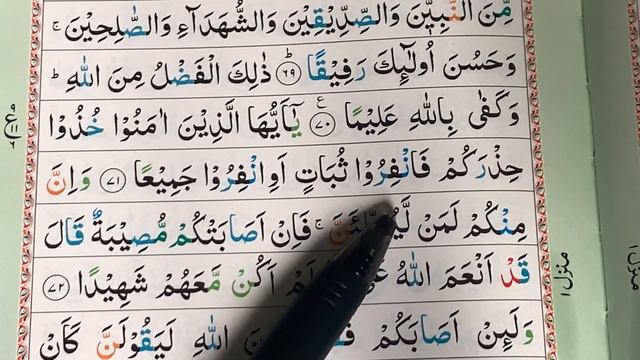 مِّنَ النَّبِيّٖنَ وَالصِّدِّيْقِيْنَ وَالشُّهَدَآءِ وَالصّٰلِحِيْنَ ۚ
وَحَسُنَ اُولٰٓئِكَ رَفِيْقًا ؕ ﴿۶۹﴾ ذٰلِكَ الْفَضْلُ مِنَ اللّٰهِ ؕ
وَكَفٰى بِاللّٰهِ عَلِيْمًا ﴿۷۰﴾ يٰۤاَيُّهَا الَّذِيْنَ اٰمَنُوْا خُذُوْا
حِذْرَكُمْ فَانْفِرُوْا ثُبَاتٍ اَوِ انْفِرُوْا جَمِيْعًا ﴿۷۱﴾ وَاِنَّ
مِنْكُمْ لَمَنْ ۚ فَاِنْ اَصَابَتْكُمْ مُّصِيْبَةٌ قَالَ
قَدْ اَنْعَمَ اللّٰهُ اَكُنْ مَّعَهُمْ شَهِيْدًا ﴿۷۲﴾
وَلَئِنْ اَصَابَكُمْ اللّٰهِ لَيَقُوْلَنَّ كَاَنْ
منزل ۱